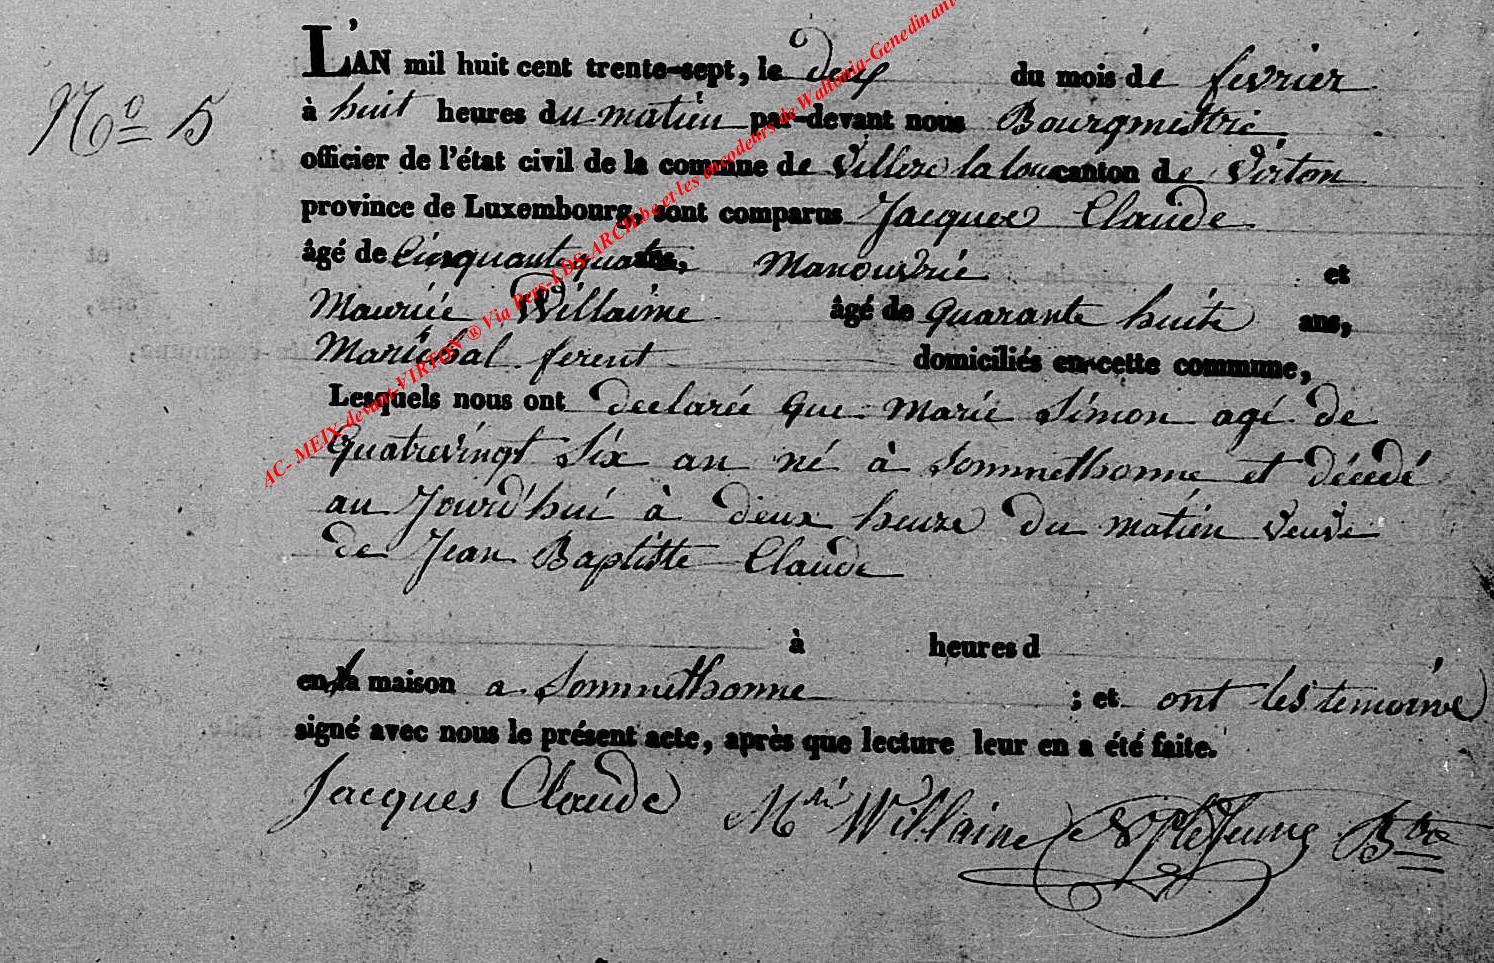 L'AN mil huit cent trente-sept, le deux du mois de fevrier
N° 5
à huit heures du matin par-devant nous Bourgmestre
officier de l'état civil de la commune de Villere la lou canton de Virton
province de Luxembourg, sont comparus Jacques Claude
âgé de Cinquante quatre ans, Manouvrié et
Mauriée Willaime âgé de quarante huite ans,
Marichal ferent domiciliés en cette commune,
Lesquels nous ont declarée que marie Simon agé de
quatrevingt Six an né à Sommethonne et décedé
au Jourd'hui à deux heure du matin veuve
de Jean Baptiste Claude
à heures d
en la maison a Sommethonne ; et ont les temoins
signé avec nous le présent acte, après que lecture leur en a été faite.
Jacques Claude Willaime LeJeune Btre
AC- MEIX-devant-VIRTON ® Via Pers-LDS-ARCH.be et les encodeurs de Wallonia-Genedinant